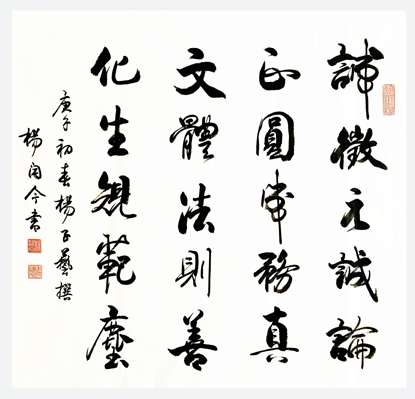 諦徵立誠論
正圓常務真
文體法則善
化生規範塵
庚子初春楊子藝撰
楊閏今書